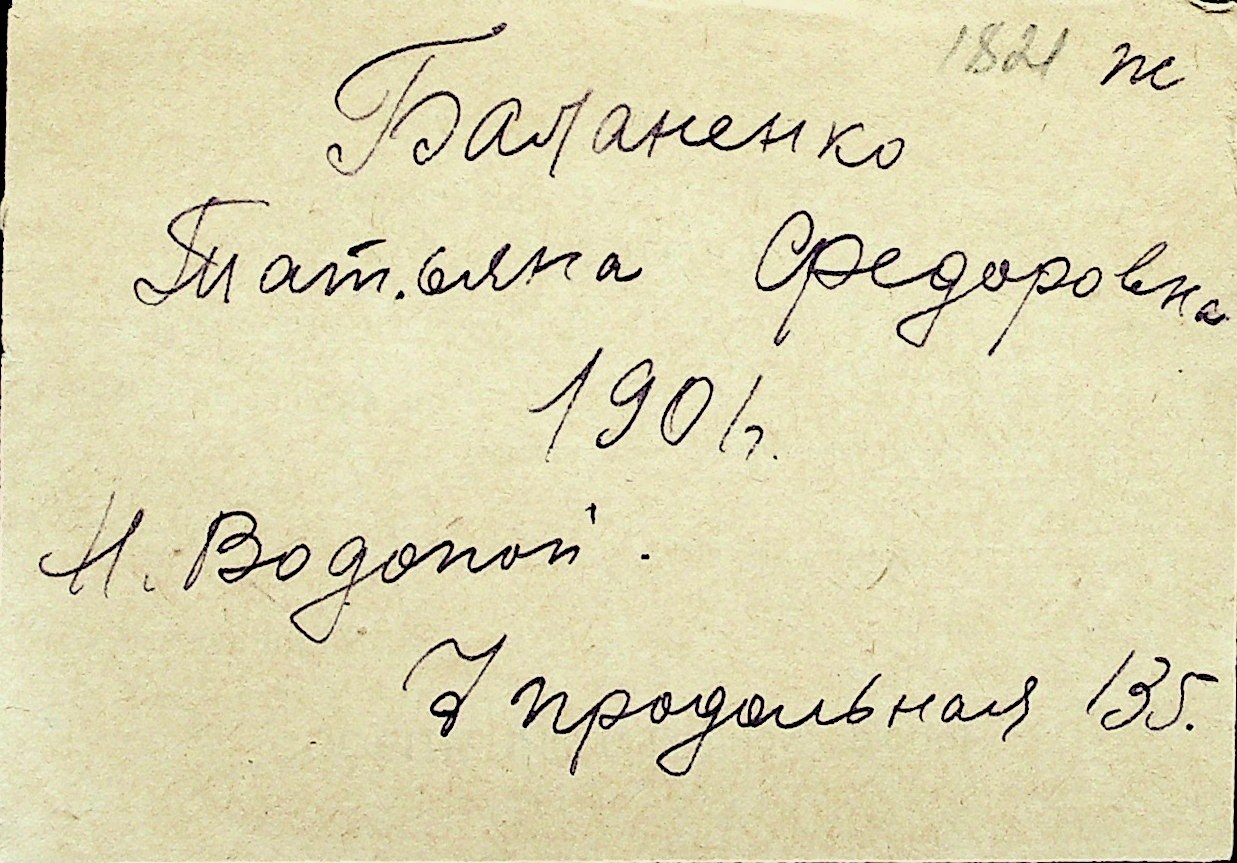 1821 ж
Баланенко
Татьяна Федоровна
1901г.
М. Водопой.
7 продольная 135.